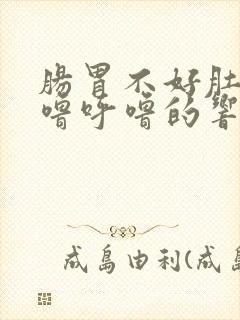 腸胃不好肚
嚕呼嚕的響
成島由利(成島